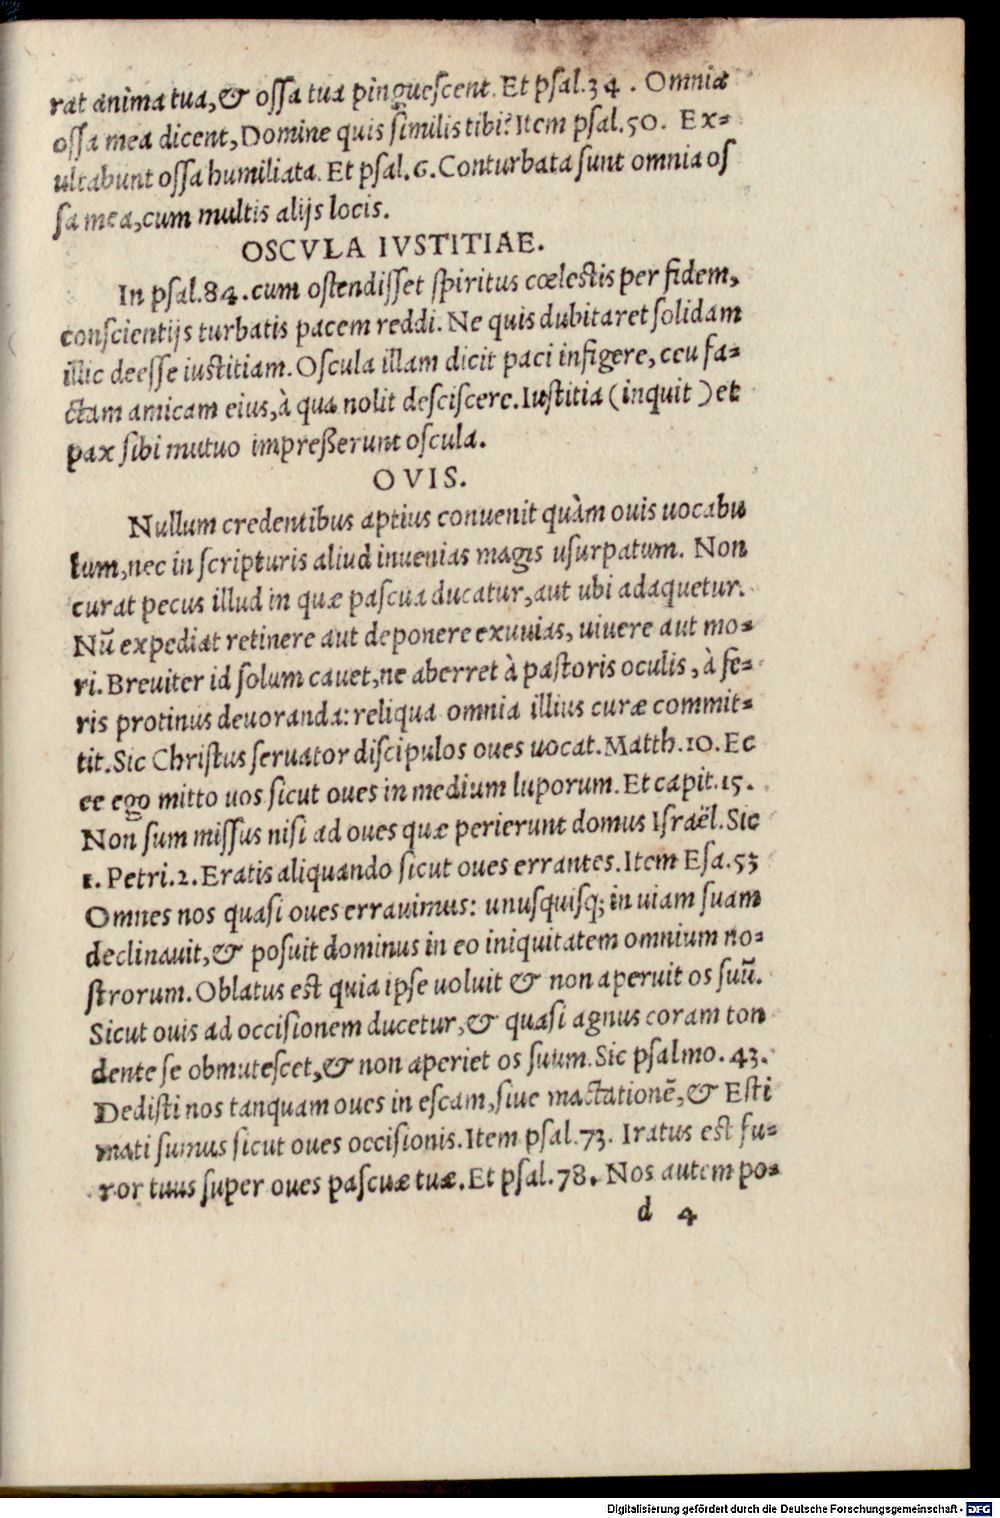 rat anima tua, & ossa tua pinguescent. Et psal. 34. Omnia
ossa mea dicent, Domine quis similis tibi? Item psal. 50. Ex=
ultabunt ossa humiliata. Et psal. 6. Conturbata sunt omnia os
sa mea, cum multis alijs locis.
OSCVLA IVSTITIAE.
In psal. 84. cum ostendisset spiritus cœlestis per fidem,
conscientijs turbatis pacem reddi. Ne quis dubitaret solidam
illic deesse iustitiam. Oscula illam dicit paci infigere, ceu fa=
ctam amicam eius, à qua nolit desciscere. Iustitia (inquit) et
pax sibi mutuo impreßerunt oscula.
OVIS.
Nullum credentibus aptius conuenit quàm ouis uocabu
lum, nec in scripturis aliud inuenias magis usurpatum. Non
curat pecus illud in quæ pascua ducatur, aut ubi adaquetur.
Nū expediat retinere aut deponere exuuias, uiuere aut mo=
ri. Breuiter id solum cauet, ne aberret à pastoris oculis, à fe=
ris protinus deuoranda: reliqua omnia illius curæ commit=
tit. Sic Christus seruator discipulos oues uocat. Matth. 10. Ec
ce ego mitto uos sicut oues in medium luporum. Et capit. 15.
Non sum missus nisi ad oues quæ perierunt domus Israël. Sic
1. Petri. 2. Eratis aliquando sicut oues errantes. Item Esa. 53
Omnes nos quasi oues errauimus: unusquisq; in uiam suam
declinauit, & posuit dominus in eo iniquitatem omnium no=
strorum. Oblatus est quia ipse uoluit & non aperuit os suū.
Sicut ouis ad occisionem ducetur, & quasi agnus coram ton
dente se obmutescet, & non aperiet os suum. Sic psalmo. 43.
Dedisti nos tanquam oues in escam, siue mactationē, & Esti
mati sumus sicut oues occisionis. Item psal. 73. Iratus est fu=
ror tuus super oues pascuæ tuæ. Et psal. 78. Nos autem po=
d 4
Digitalisierung gefördert durch die Deutsche Forschungsgemeinschaft - DFG